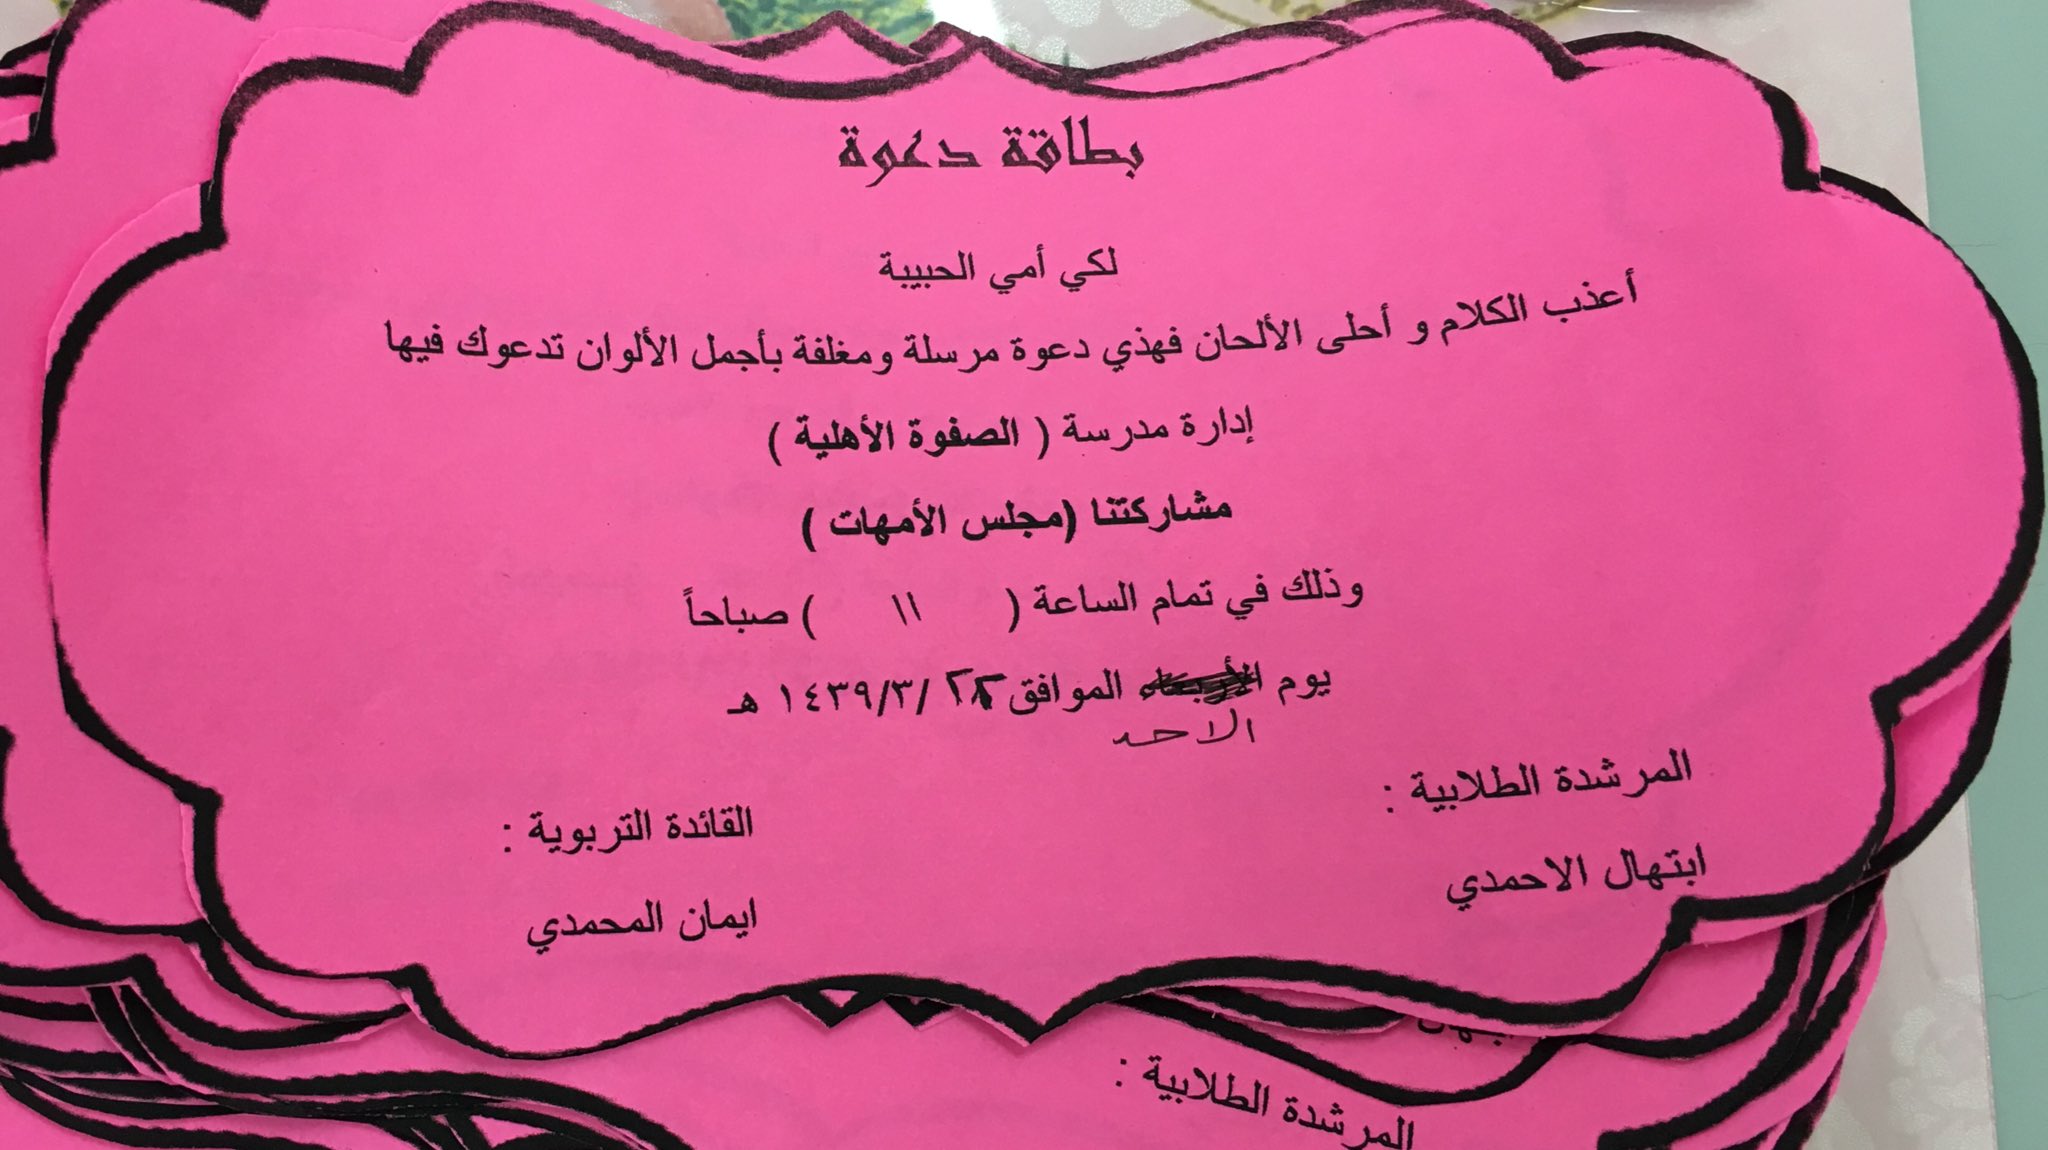 بطاقة دعوة
لكي أمي الحبيبة
أعذب الكلام و أحلى الألحان فهذي دعوة مرسلة ومغلفة بأجمل الألوان تدعوك فيها
إدارة مدرسة ( الصفوة الأهلية )
مشاركتنا (مجلس الأمهات )
وذلك في تمام الساعة ( ١١ ) صباحاً
يوم الموافق ٢٢ /٣/١٤٣٩ هـ
الاحد
المرشدة الطلابية :
القائدة التربوية :
ابتهال الاحمدي
ايمان المحمدي
المرشدة الطلابية :